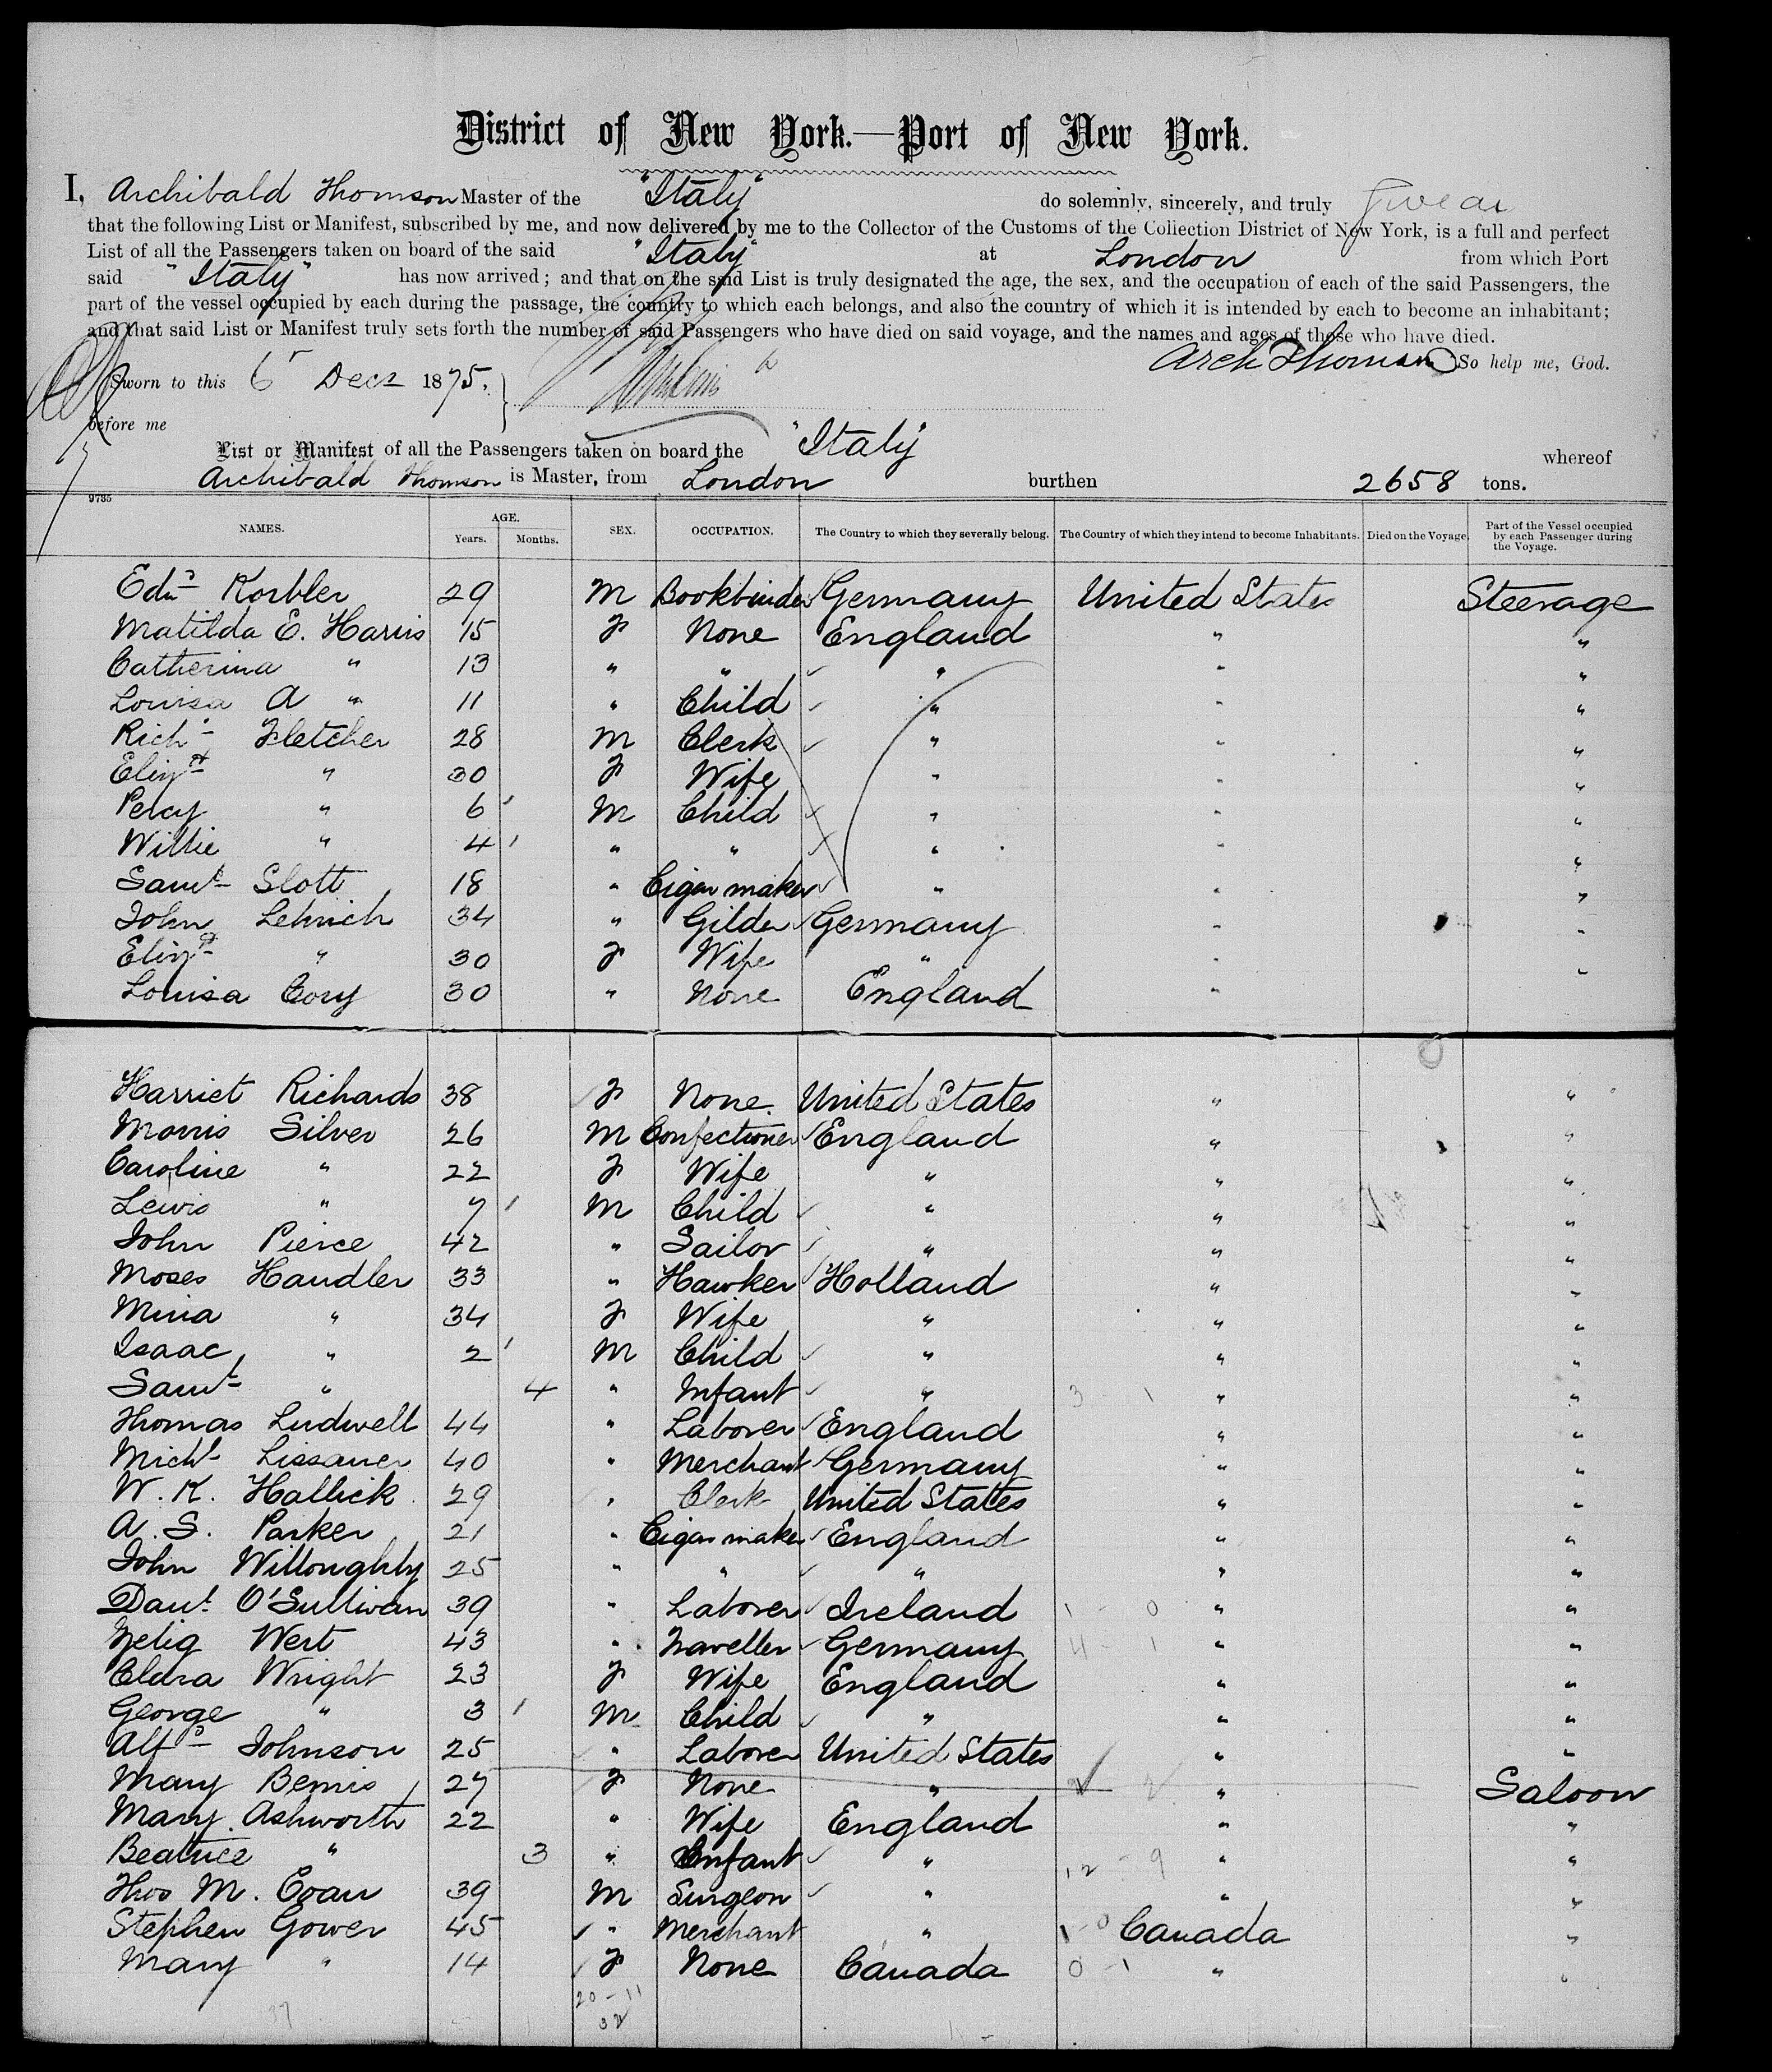 District of New York.—Port of New York.
I, Archibald Thomson Master of the "Italy" do solemnly, sincerely, and truly swear
that the following List or Manifest, subscribed by me, and now delivered by me to the Collector of the Customs of the Collection District of New York, is a full and perfect
List of all the Passengers taken on board of the said "Italy" at London from which Port
said "Italy" has now arrived; and that on the said List is truly designated the age, the sex, and the occupation of each of the said Passengers, the
part of the vessel occupied by each during the passage, the country to which each belongs, and also the country of which it is intended by each to become an inhabitant;
and that said List or Manifest truly sets forth the number of said Passengers who have died on said voyage, and the names and ages of those who have died.
Arch Thomson So help me, God.
Sworn to this 6 Decr 1875.
before me
List or Manifest of all the Passengers taken on board the "Italy" whereof
Archibald Thomson is Master, from London burthen 2658 tons.
9735
NAMES. AGE. Years. Months. SEX. OCCUPATION. The Country to which they severally belong. The Country of which they intend to become Inhabitants. Died on the Voyage. Part of the Vessel occupied by each Passenger during the Voyage.
Edwd Korbler 29 M Bookbinder Germany United States Steerage
Matilda E. Harris 15 F None England " "
Catherina " 13 " " " " "
Louisa A " 11 " Child " " "
Richd Fletcher 28 M Clerk " " "
Elizth " 30 F Wife " " "
Percy " 6 M Child " " "
Willie " 4 " " " " "
Saml Slott 18 " Cigar maker " " "
John Lehrich 34 " Gilder Germany " "
Elizth " 30 F Wife " " "
Louisa Cory 30 " None England "
Harriet Richards 38 F None United States " "
Morris Silver 26 M Confectioner England " "
Caroline " 22 F Wife " " "
Lewis " 7 M Child " " "
John Pierce 42 " Sailor " " "
Moses Handler 33 " Hawker Holland " "
Mina " 34 F Wife " " "
Isaac " 2 M Child " " "
Saml " 4 " Infant " 3 - 1 " "
Thomas Ludwell 44 " Laborer England " "
Michl Lissauer 40 " Merchant Germany " "
W. K. Hallick 29 " Clerk United States " "
A. S. Parker 21 " Cigar maker England " "
John Willoughby 25 " " " " "
Danl O'Sullivan 39 " Laborer Ireland 1 - 0 " "
Zelig Wert 43 " Traveller Germany 4 - 1 " "
Clara Wright 23 F Wife England " "
George " 3 M Child " " "
Alfd Johnson 25 " Laborer United States " "
Mary Bemis 27 F None " " Saloon
Mary Ashworth 22 " Wife England " "
Beatrice " 3 " Infant " 12 - 9 " "
Thos M. Evan 39 M Surgeon " " "
Stephen Gower 45 " Merchant " 1 - 0 Canada "
Mary " 14 F None Canada 0 - 1 " "
20 - 11
32
37